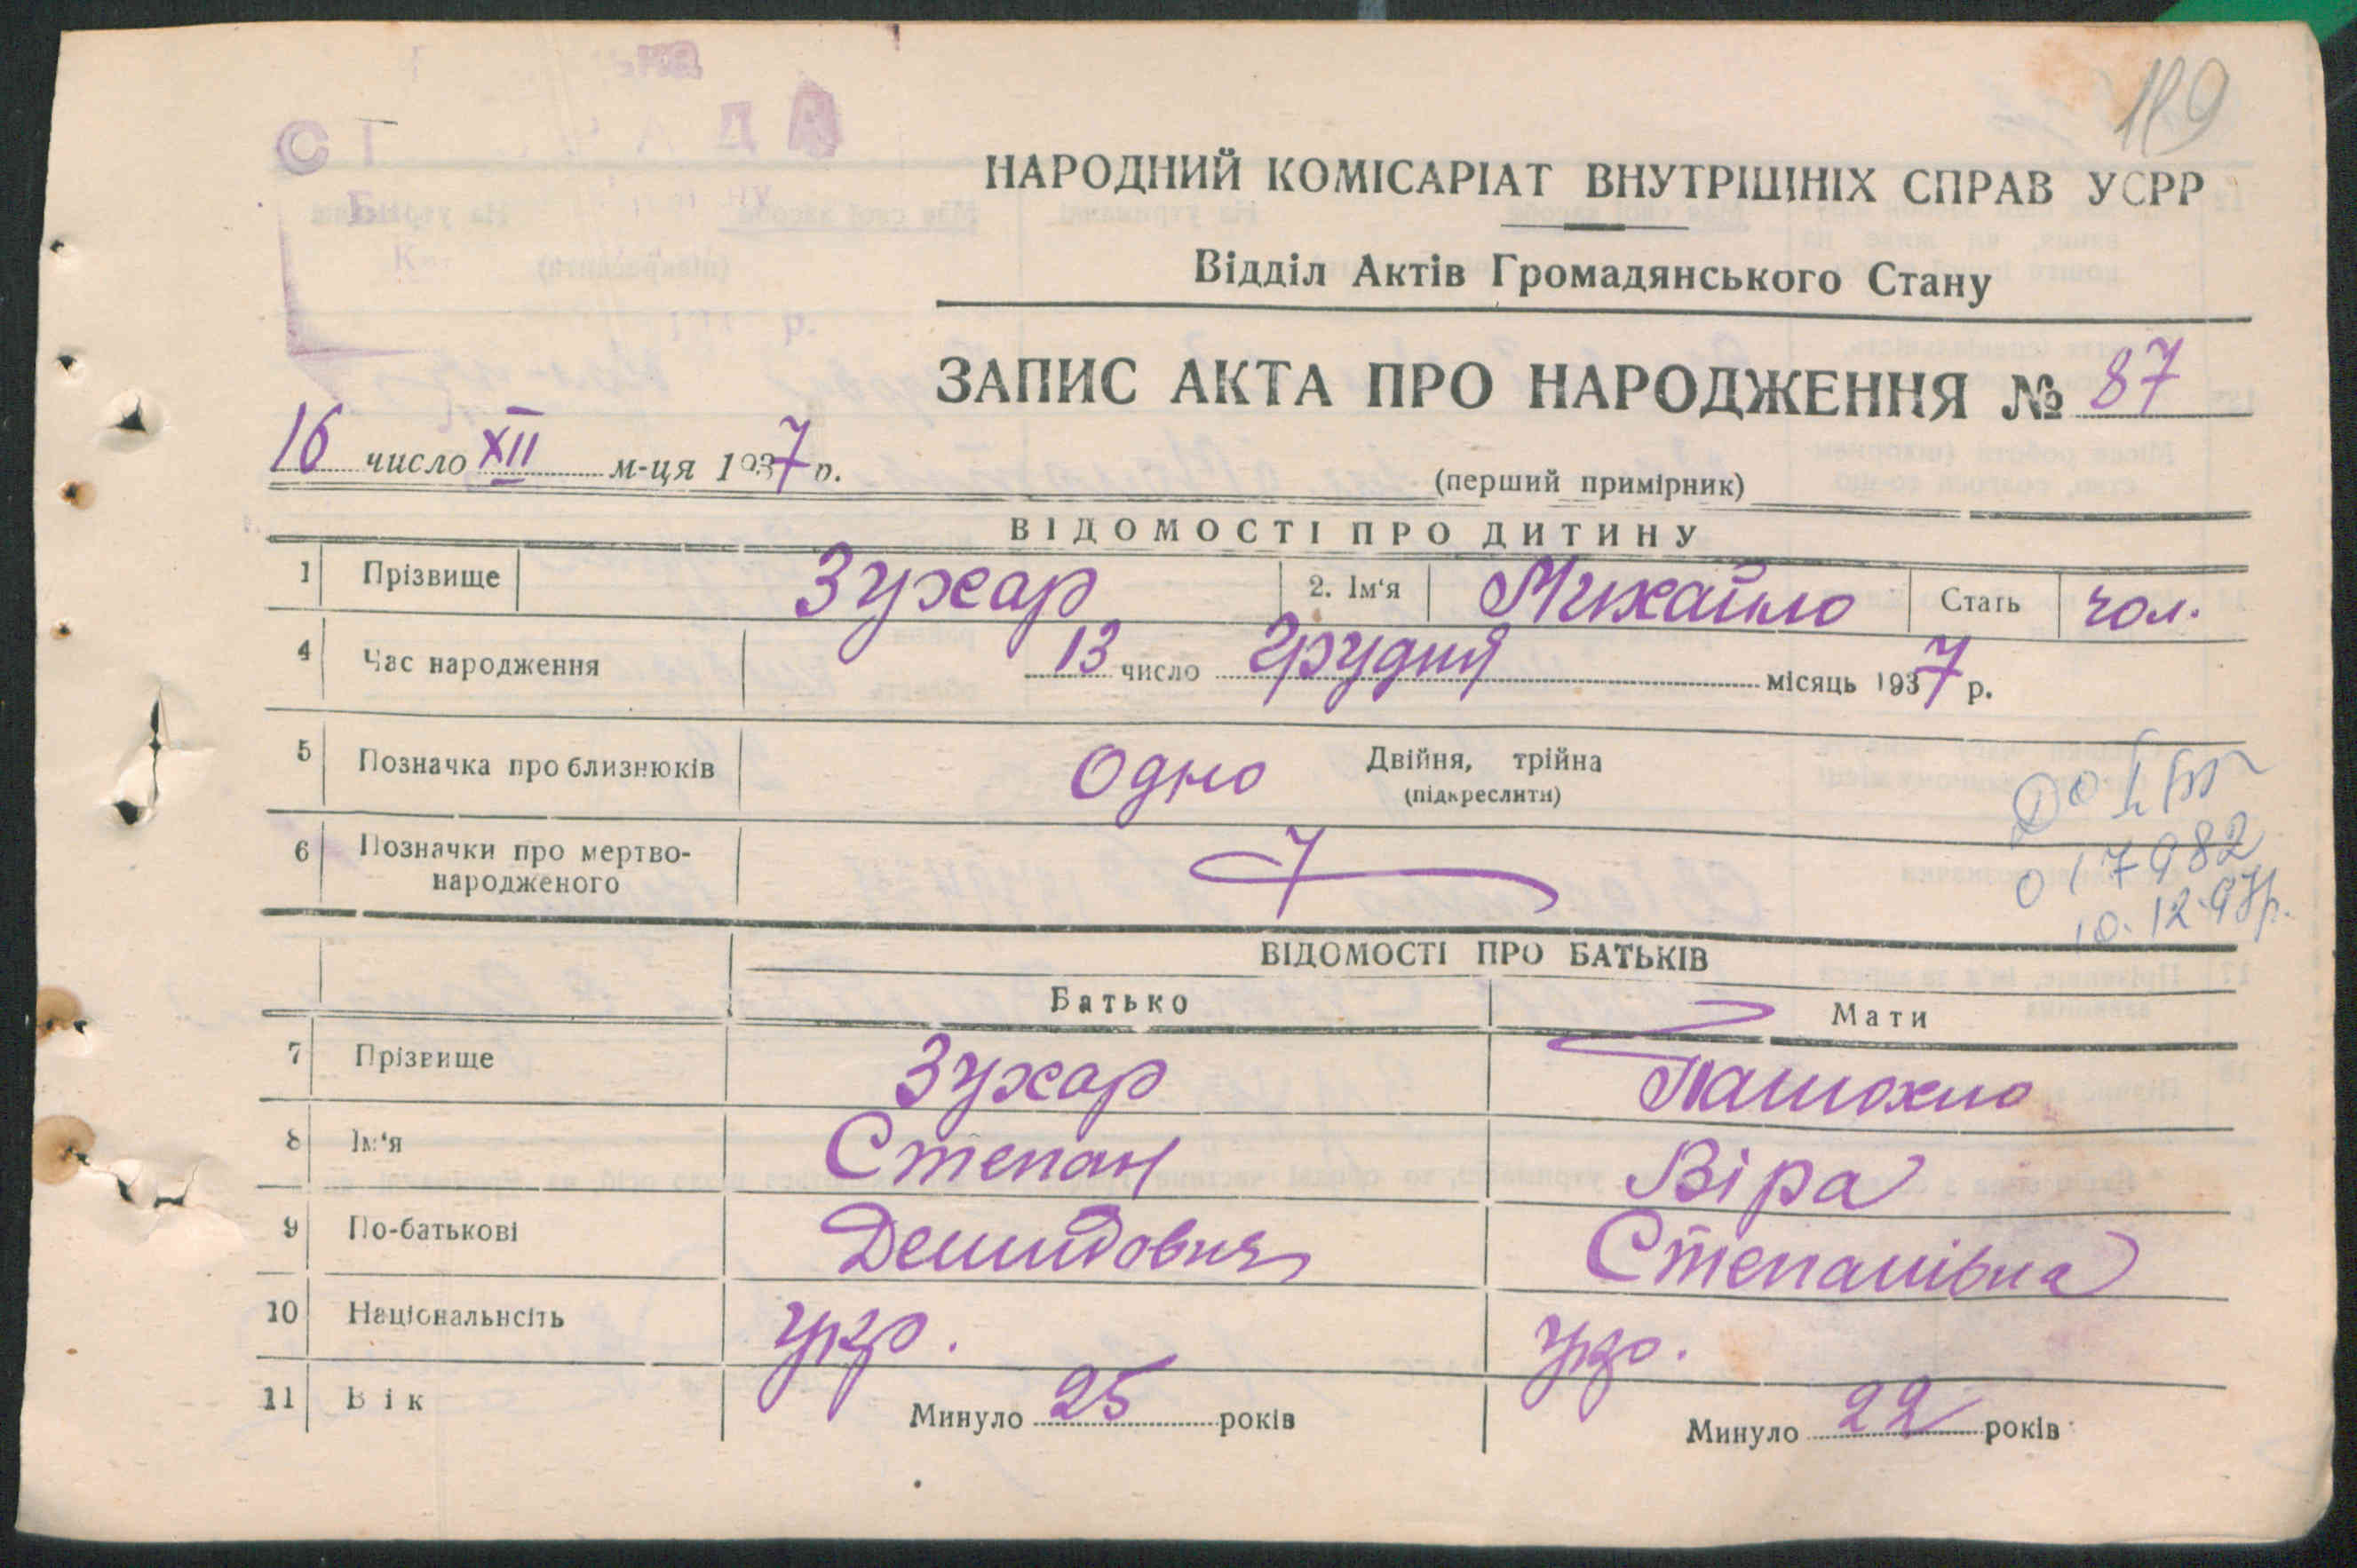 189
НАРОДНИЙ КОМІСАРІАТ ВНУТРІШНІХ СПРАВ УСРР
Відділ Актів Громадянського Стану
ЗАПИС АКТА ПРО НАРОДЖЕННЯ № 87
16 число XII м-ця 1937 р.
(перший примірник)
ВІДОМОСТІ ПРО ДИТИНУ
1 Прізвище Зухар 2. Ім'я Михайло Стать чол.
4 Час народження 13 число Грудня місяць 1937 р.
5 Позначка про близнюків Одно Двійня, трійна
(підкреслити)
6 Позначки про мертво-
народженого
017982
10.12.97р.
ВІДОМОСТІ ПРО БАТЬКІВ
Батько Мати
7 Прізвище Зухар
8 Ім'я Степан Віра
9 По-батькові Демидович Степанівна
10 Національнсіть укр. укр.
11 Вік Минуло 25 років Минуло 22 років